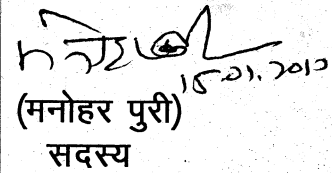 15.01.2010
(मनोहर पुरी)
सदस्य